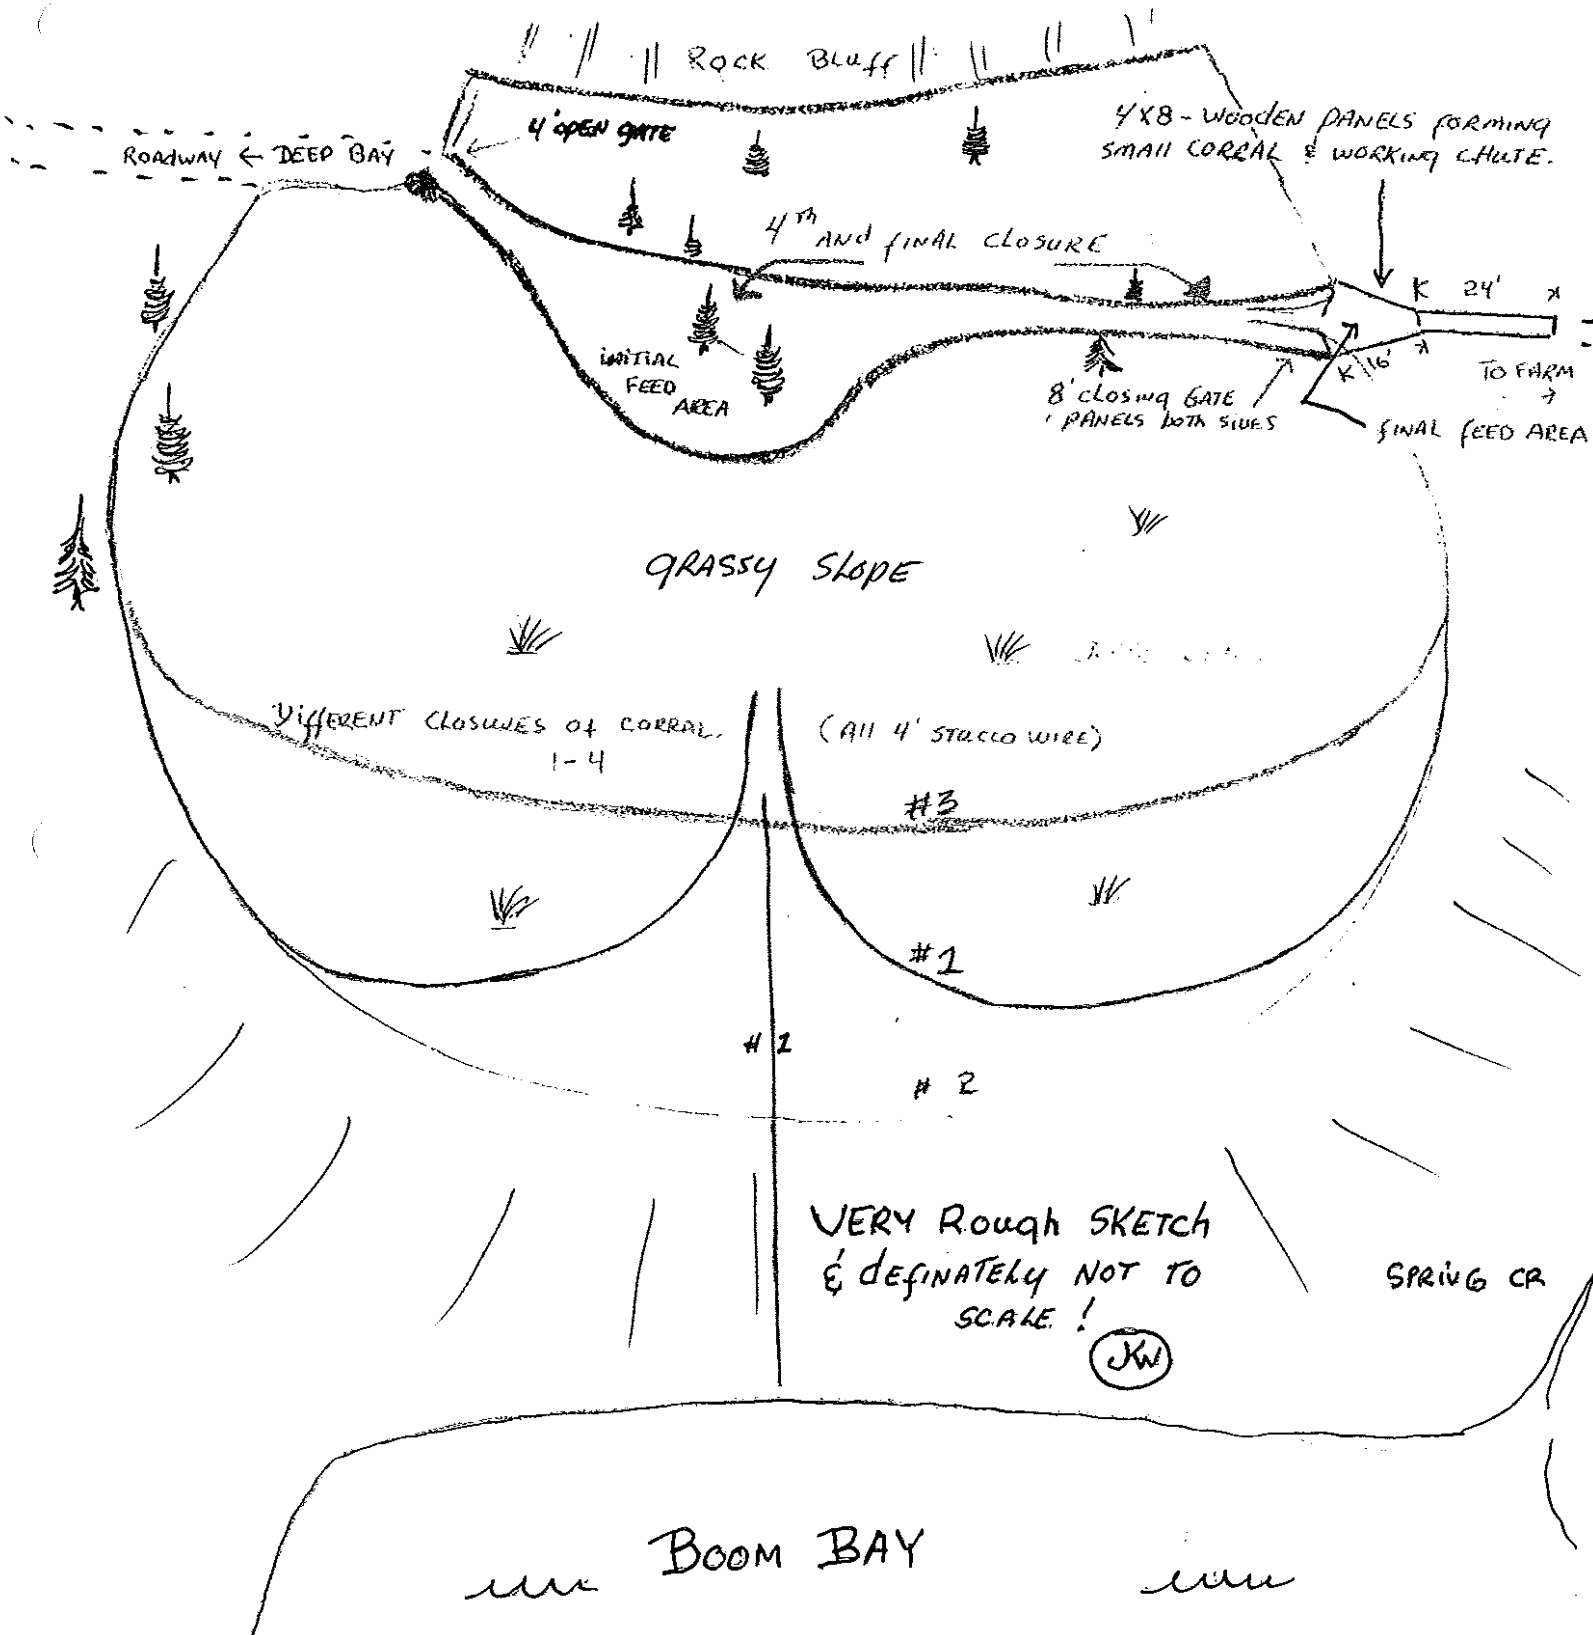 ROCK BLUff
4' OPEN GATE
4X8 - WOODEN PANELS FORMING
SMALL CORRAL & WORKING CHUTE.
ROADWAY ← DEEP BAY
4TH AND FINAL CLOSURE
24'
INITIAL
FEED
AREA
16'
TO FARM
→
8' CLOSING GATE
PANELS BOTH SIDES
FINAL FEED AREA
GRASSY SLOPE
DiffERENT CLOSURES Of CORRAL.
1-4
(All 4' STUCCO WIRE)
#3
#1
#1
# 2
VERY Rough SKETCh
& dEfINATELY NOT TO
SCALE !
JKW
SPRING CR
BOOM BAY